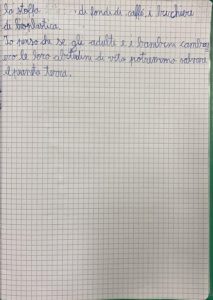 la stoffa di fondi di caffé, i bicchieri
di bioplastica.
Io penso che se gli adulti e i bambini cambias
ero le loro abitudini di vita potremmo salvare
il pianeta Terra.